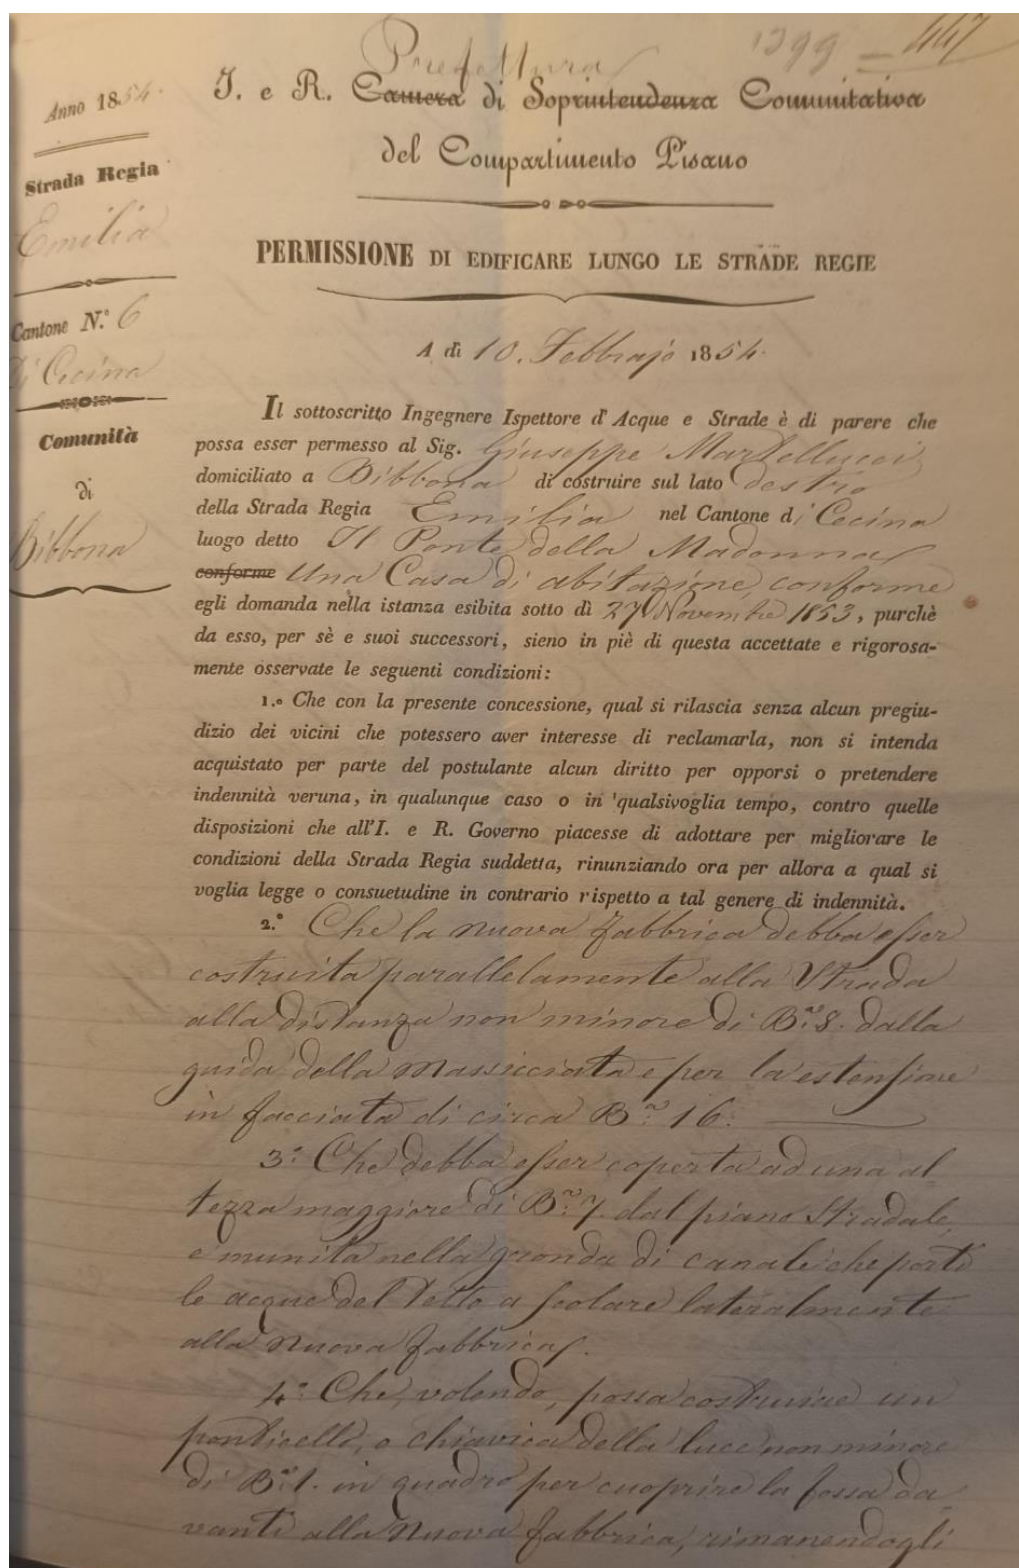 1399 — 447
Prefettura
Anno 1854.
I. e R. Camera di Soprintendenza Comunitativa
del Compartimento Pisano
Strada Regia
Emilia
PERMISSIONE DI EDIFICARE LUNGO LE STRADE REGIE
Cantone N.º 6
Di Cecina
A dì 10. Febbrajo 1854.
Comunità
di
Bibbona
Il sottoscritto Ingegnere Ispettore d'Acque e Strade è di parere che
possa esser permesso al Sig. Giuseppe Martellucci
domiciliato a Bibbona di costruire sul lato destro
della Strada Regia Emilia nel Cantone di Cecina
luogo detto Il Ponte della Madonna
conforme Una Casa di abitazione, conforme
egli domanda nella istanza esibita sotto dì 27 Novembre 1853, purchè
da esso, per sè e suoi successori, sieno in piè di questa accettate e rigorosa-
mente osservate le seguenti condizioni:
1.º Che con la presente concessione, qual si rilascia senza alcun pregiu-
dizio dei vicini che potessero aver interesse di reclamarla, non si intenda
acquistato per parte del postulante alcun diritto per opporsi o pretendere
indennità veruna, in qualunque caso o in qualsivoglia tempo, contro quelle
disposizioni che all'I. e R. Governo piacesse di adottare per migliorare le
condizioni della Strada Regia suddetta, rinunziando ora per allora a qual si
voglia legge o consuetudine in contrario rispetto a tal genere di indennità.
2.º Che la nuova fabbrica debba esser
costruita parallelamente alla Strada
alla distanza non minore di Bª 8. dalla
guida della massicciata e per la estensione
in facciata di circa Bª 16.
3.º Che debba esser coperta ad una al-
tezza maggiore di Bª 7. dal piano stradale,
e munita nella gronda di canale che porti
le acque del Tetto a scolare lateralmente
alla nuova fabbrica.
4.º Che, volendo, possa costruire un
ponticello, o chiavica della luce non minore
di Bª 1. in quadro per cuoprire la fossa da-
vanti alla nuova fabbrica, rimanendogli